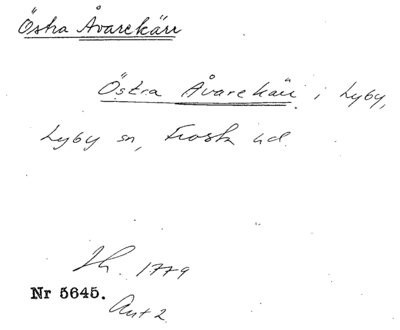 Östra Åvarekärr
Östra Åvarekärr i Lyby,
Lyby sn, Frosta hd.
1779
Nr 5645.
Akt 2